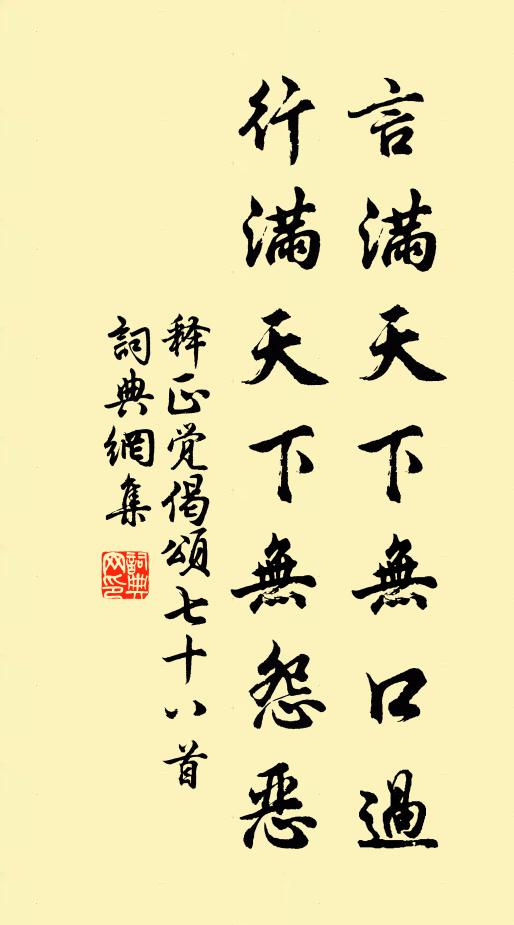 言滿天下無口過
行滿天下無怨惡
释正覚偈頌七十八首
詞典網集
詞典
网印